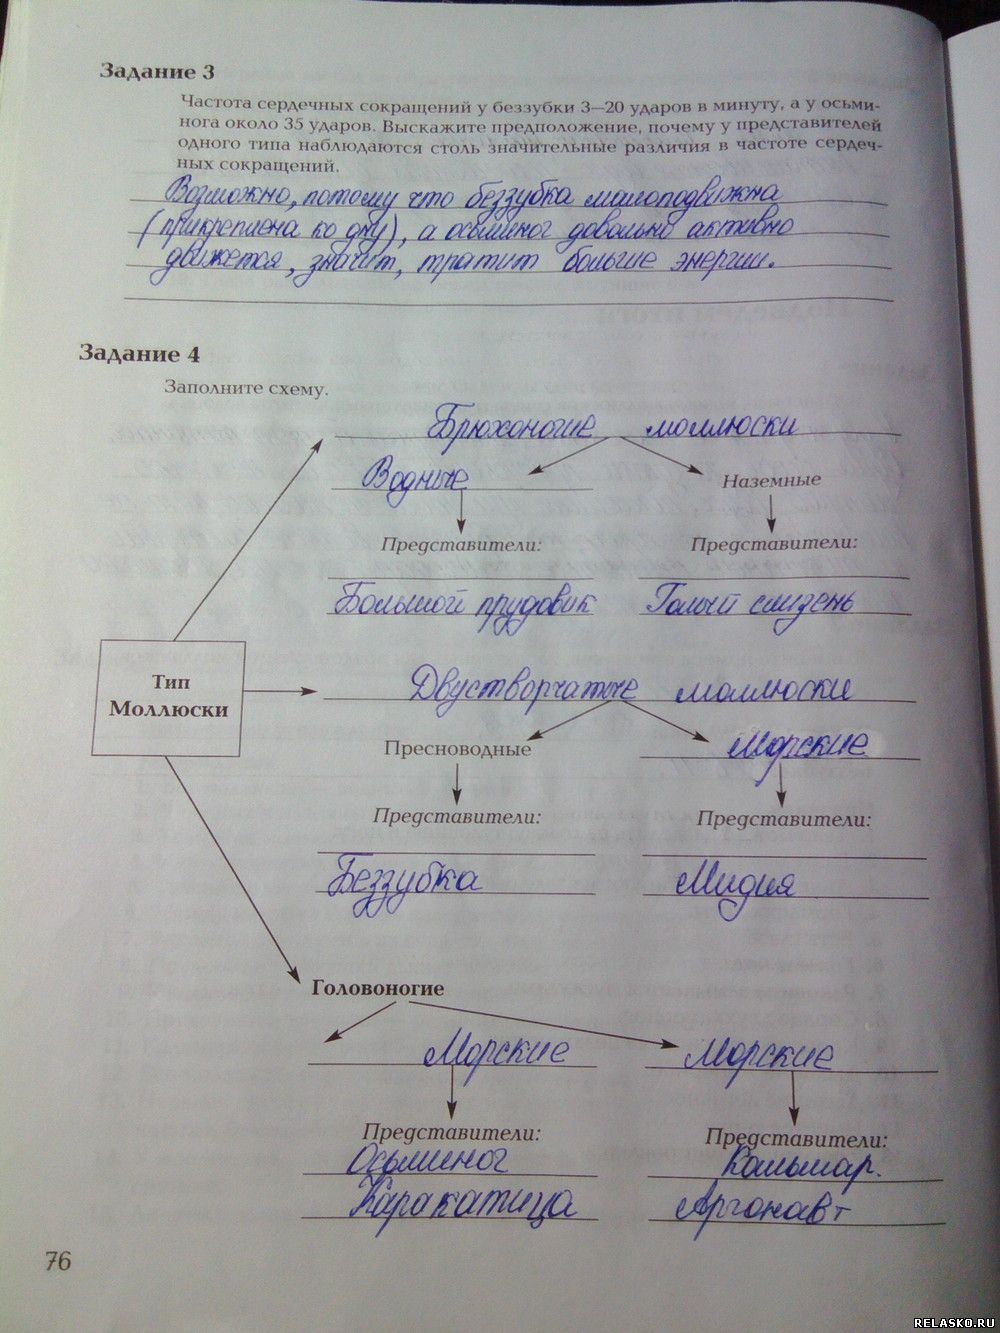 Задание 3
Частота сердечных сокращений у беззубки 3—20 ударов в минуту, а у осьми-
нога около 35 ударов. Выскажите предположение, почему у представителей
одного типа наблюдаются столь значительные различия в частоте сердеч-
ных сокращений.
Возможно, потому что беззубка малоподвижна
(прикреплена ко дну), а осьминог довольно активно
движется, значит, тратит больше энергии.
Задание 4
Заполните схему.
Брюхоногие моллюски
Водные Наземные
Представители: Представители:
Большой прудовик Голый слизень
Тип
Моллюски
Двустворчатые моллюски
Пресноводные Морские
Представители: Представители:
Беззубка Мидия
Головоногие
Морские Морские
Представители: Представители:
Осьминог Кальмар.
Каракатица Аргонавт
76
RELASKO.RU